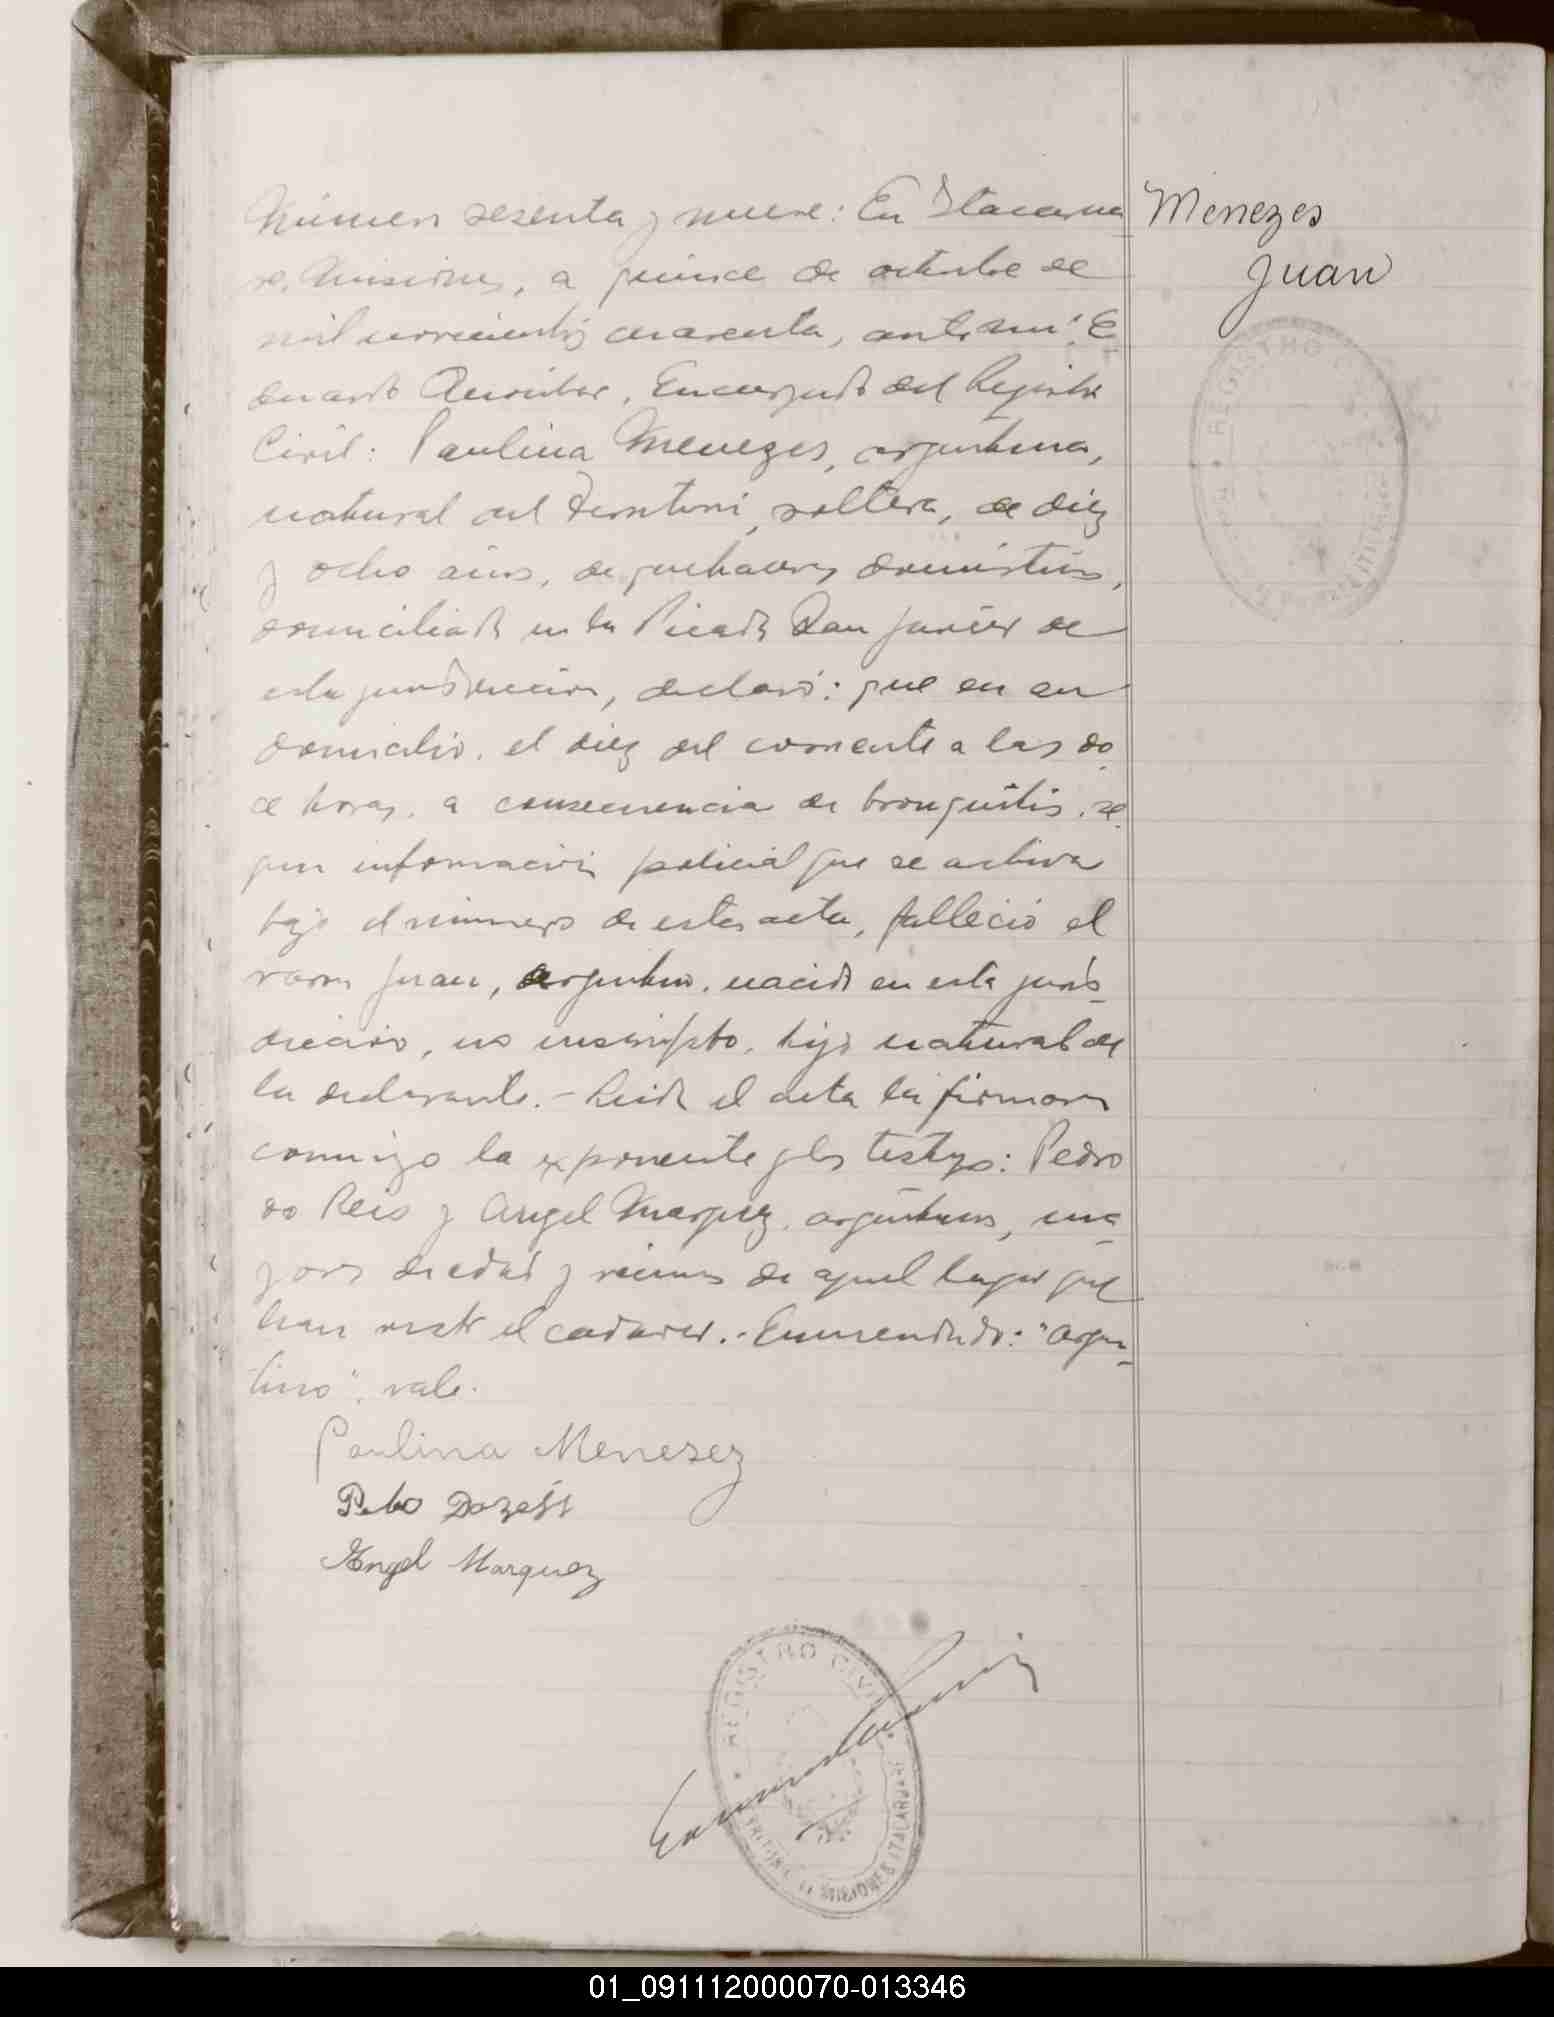 Número sesenta y nueve: En Itacarua
re, Misiones, a quince de octubre de
mil novecientos cuarenta, ante mí: E
duardo, Encargado del Registro
Civil: Paulina Menezes, argentina,
natural del Territorio, soltera, de diez
y ocho años, de quehaceres domésticos,
domiciliada en la Picada San Javier de
esta jurisdicción, declaró: que en su
domicilio, el diez del corriente a las do
ce horas, a consecuencia de bronquitis, se
gun información policial que se archiva
bajo el número de esta acta, falleció el
varon Juan, argentino, nacido en esta juris
dicción, no inscripto, hijo natural de
la declarante.- Leida el acta la firmaron
conmigo la exponente y los testigos: Pedro
do Reis y Angel Marquez, argentinos, ma
yores de edad y vecinos de aquel lugar que
han visto el cadaver.- Enmendado: "argen
tino", vale.
Paulina Menesez
Angel Marquez
REGISTRO CIVIL
TERRITORIO DE MISIONES ITACARUARE
Menezes
Juan
REGISTRO C
01_091112000070-013346